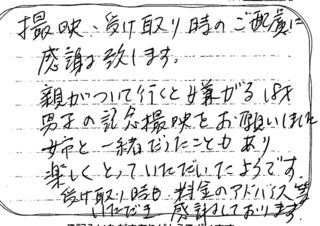 撮映、受け取り時のご配慮に
感謝致します。
親がついて行くと嫌がる18才
男子の記念撮映をお願いしました
姉と一緒だったこともあり
楽しくとっていただいたようです。
受け取り時も料金のアドバイス等
いただき感謝しております。